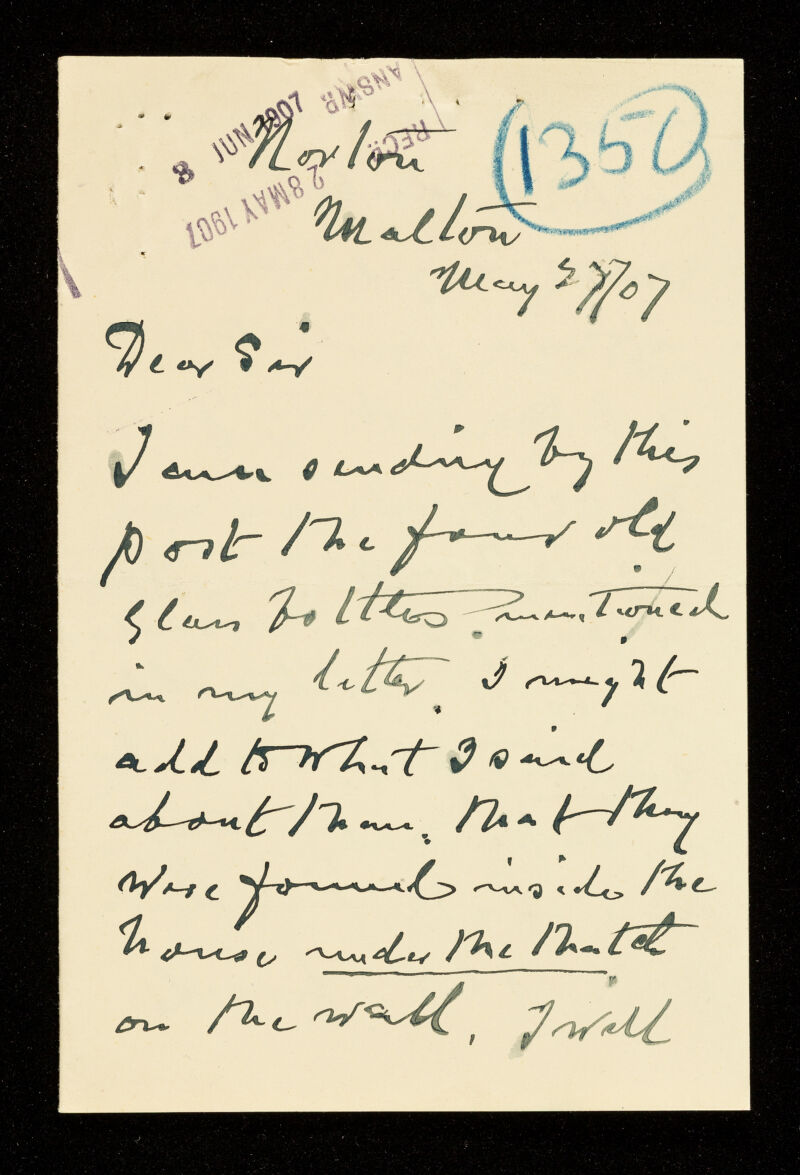 ANSWD.
8 JUN 1907
RECD.
28 MAY 1907
1350
Norton
Malton
May 27/07
Dear Sir
I am sending by this
post the four old
glass bottles mentioned
in my letter. I might
add to what I said
about them, that they
were found inside the
house under the thatch
on the wall, I will